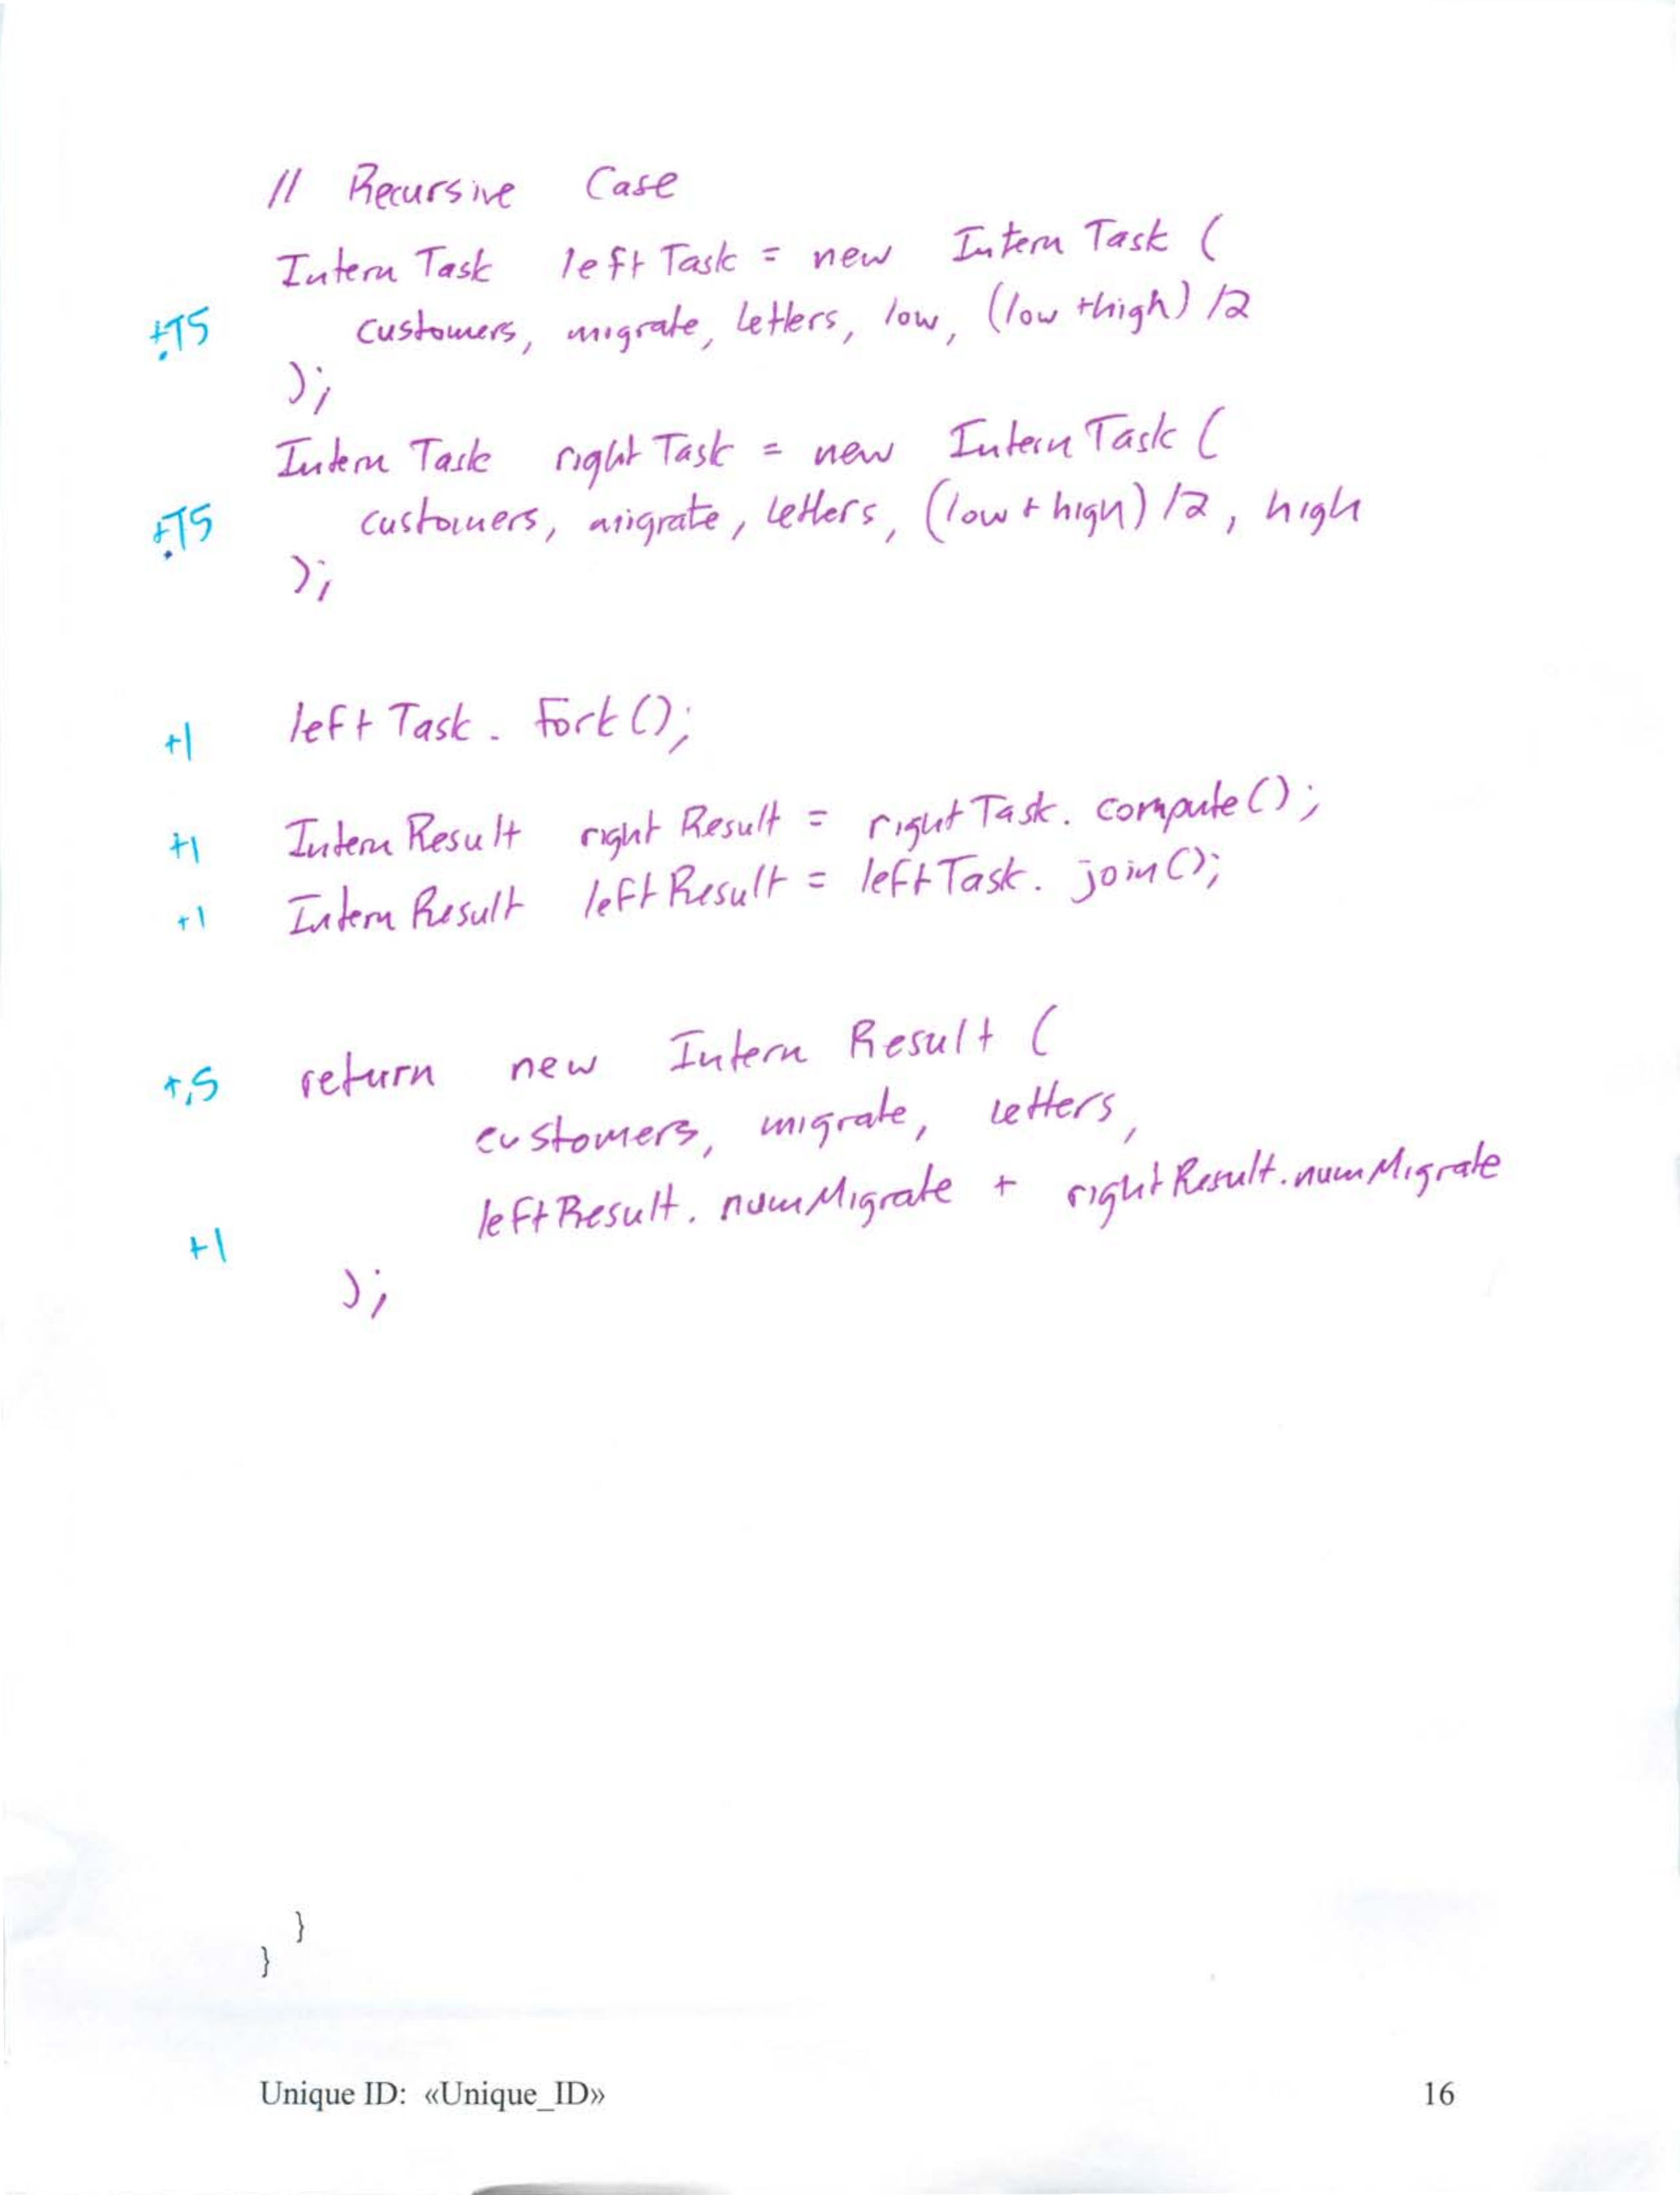 // Recursive Case
InternTask leftTask = new InternTask (
+.75 customers, migrate, letters, low, (low + high) /2
);
InternTask rightTask = new InternTask (
+.75 customers, migrate, letters, (low + high) /2, high
);
+1 leftTask. fork();
+1 InternResult rightResult = rightTask. compute();
+1 InternResult leftResult = leftTask. join();
+.5 return new InternResult (
customers, migrate, letters,
leftResult. numMigrate + rightResult. numMigrate
+1
);
}
}
Unique ID: «Unique_ID» 16